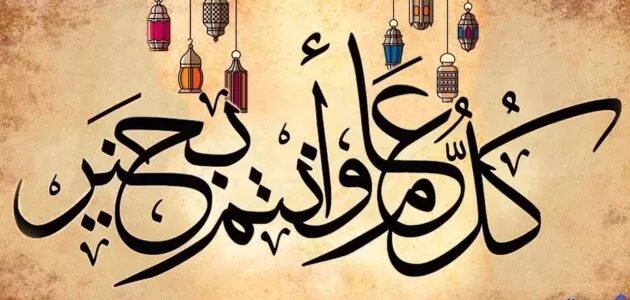 كُلُّ عام وأنتم بخير